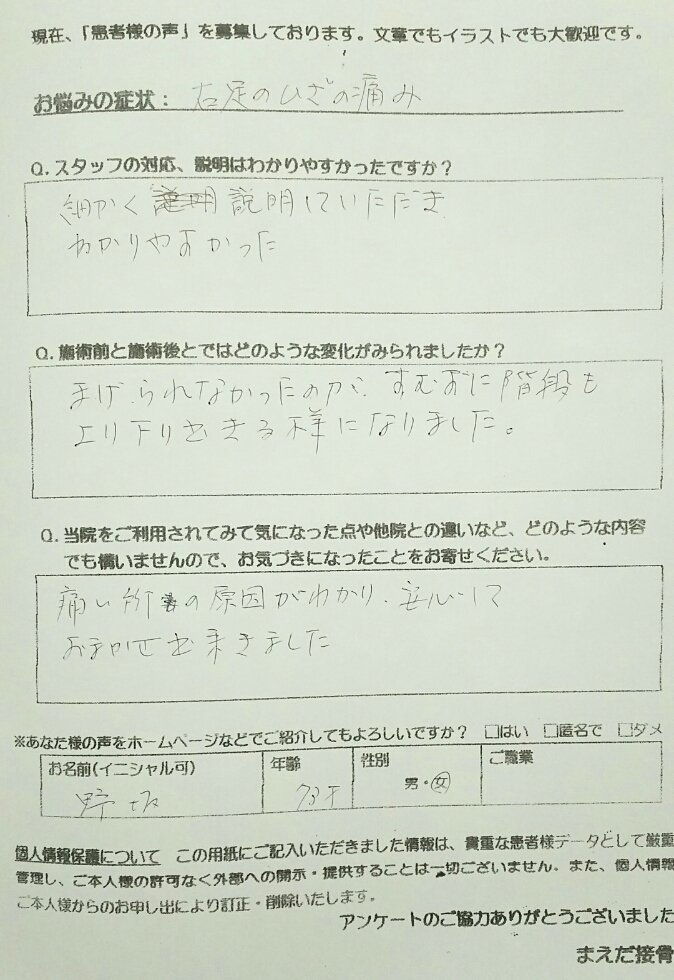 現在、「患者様の声」を募集しております。文章でもイラストでも大歓迎です。
お悩みの症状： 右足のひざの痛み
Q. スタッフの対応、説明はわかりやすかったですか？
細かく 説明していただき
わかりやすかった
Q. 施術前と施術後とではどのような変化がみられましたか？
まげられなかったのが、すむずに階段も
上り下り出きる様になりました。
Q. 当院をご利用されてみて気になった点や他院との違いなど、どのような内容
でも構いませんので、お気づきになったことをお寄せください。
痛い所の原因がわかり、安心して
おまかせ出来きました
※あなた様の声をホームページなどでご紹介してもよろしいですか？ □はい □匿名で □ダメ
お名前(イニシャル可) 年齢 性別 ご職業
野坂 73才 男・女
個人情報保護について この用紙にご記入いただきました情報は、貴重な患者様データとして厳重
管理し、ご本人様の許可なく外部への開示・提供することは一切ございません。また、個人情報
ご本人様からのお申し出により訂正・削除いたします。
アンケートのご協力ありがとうございました
まえだ接骨